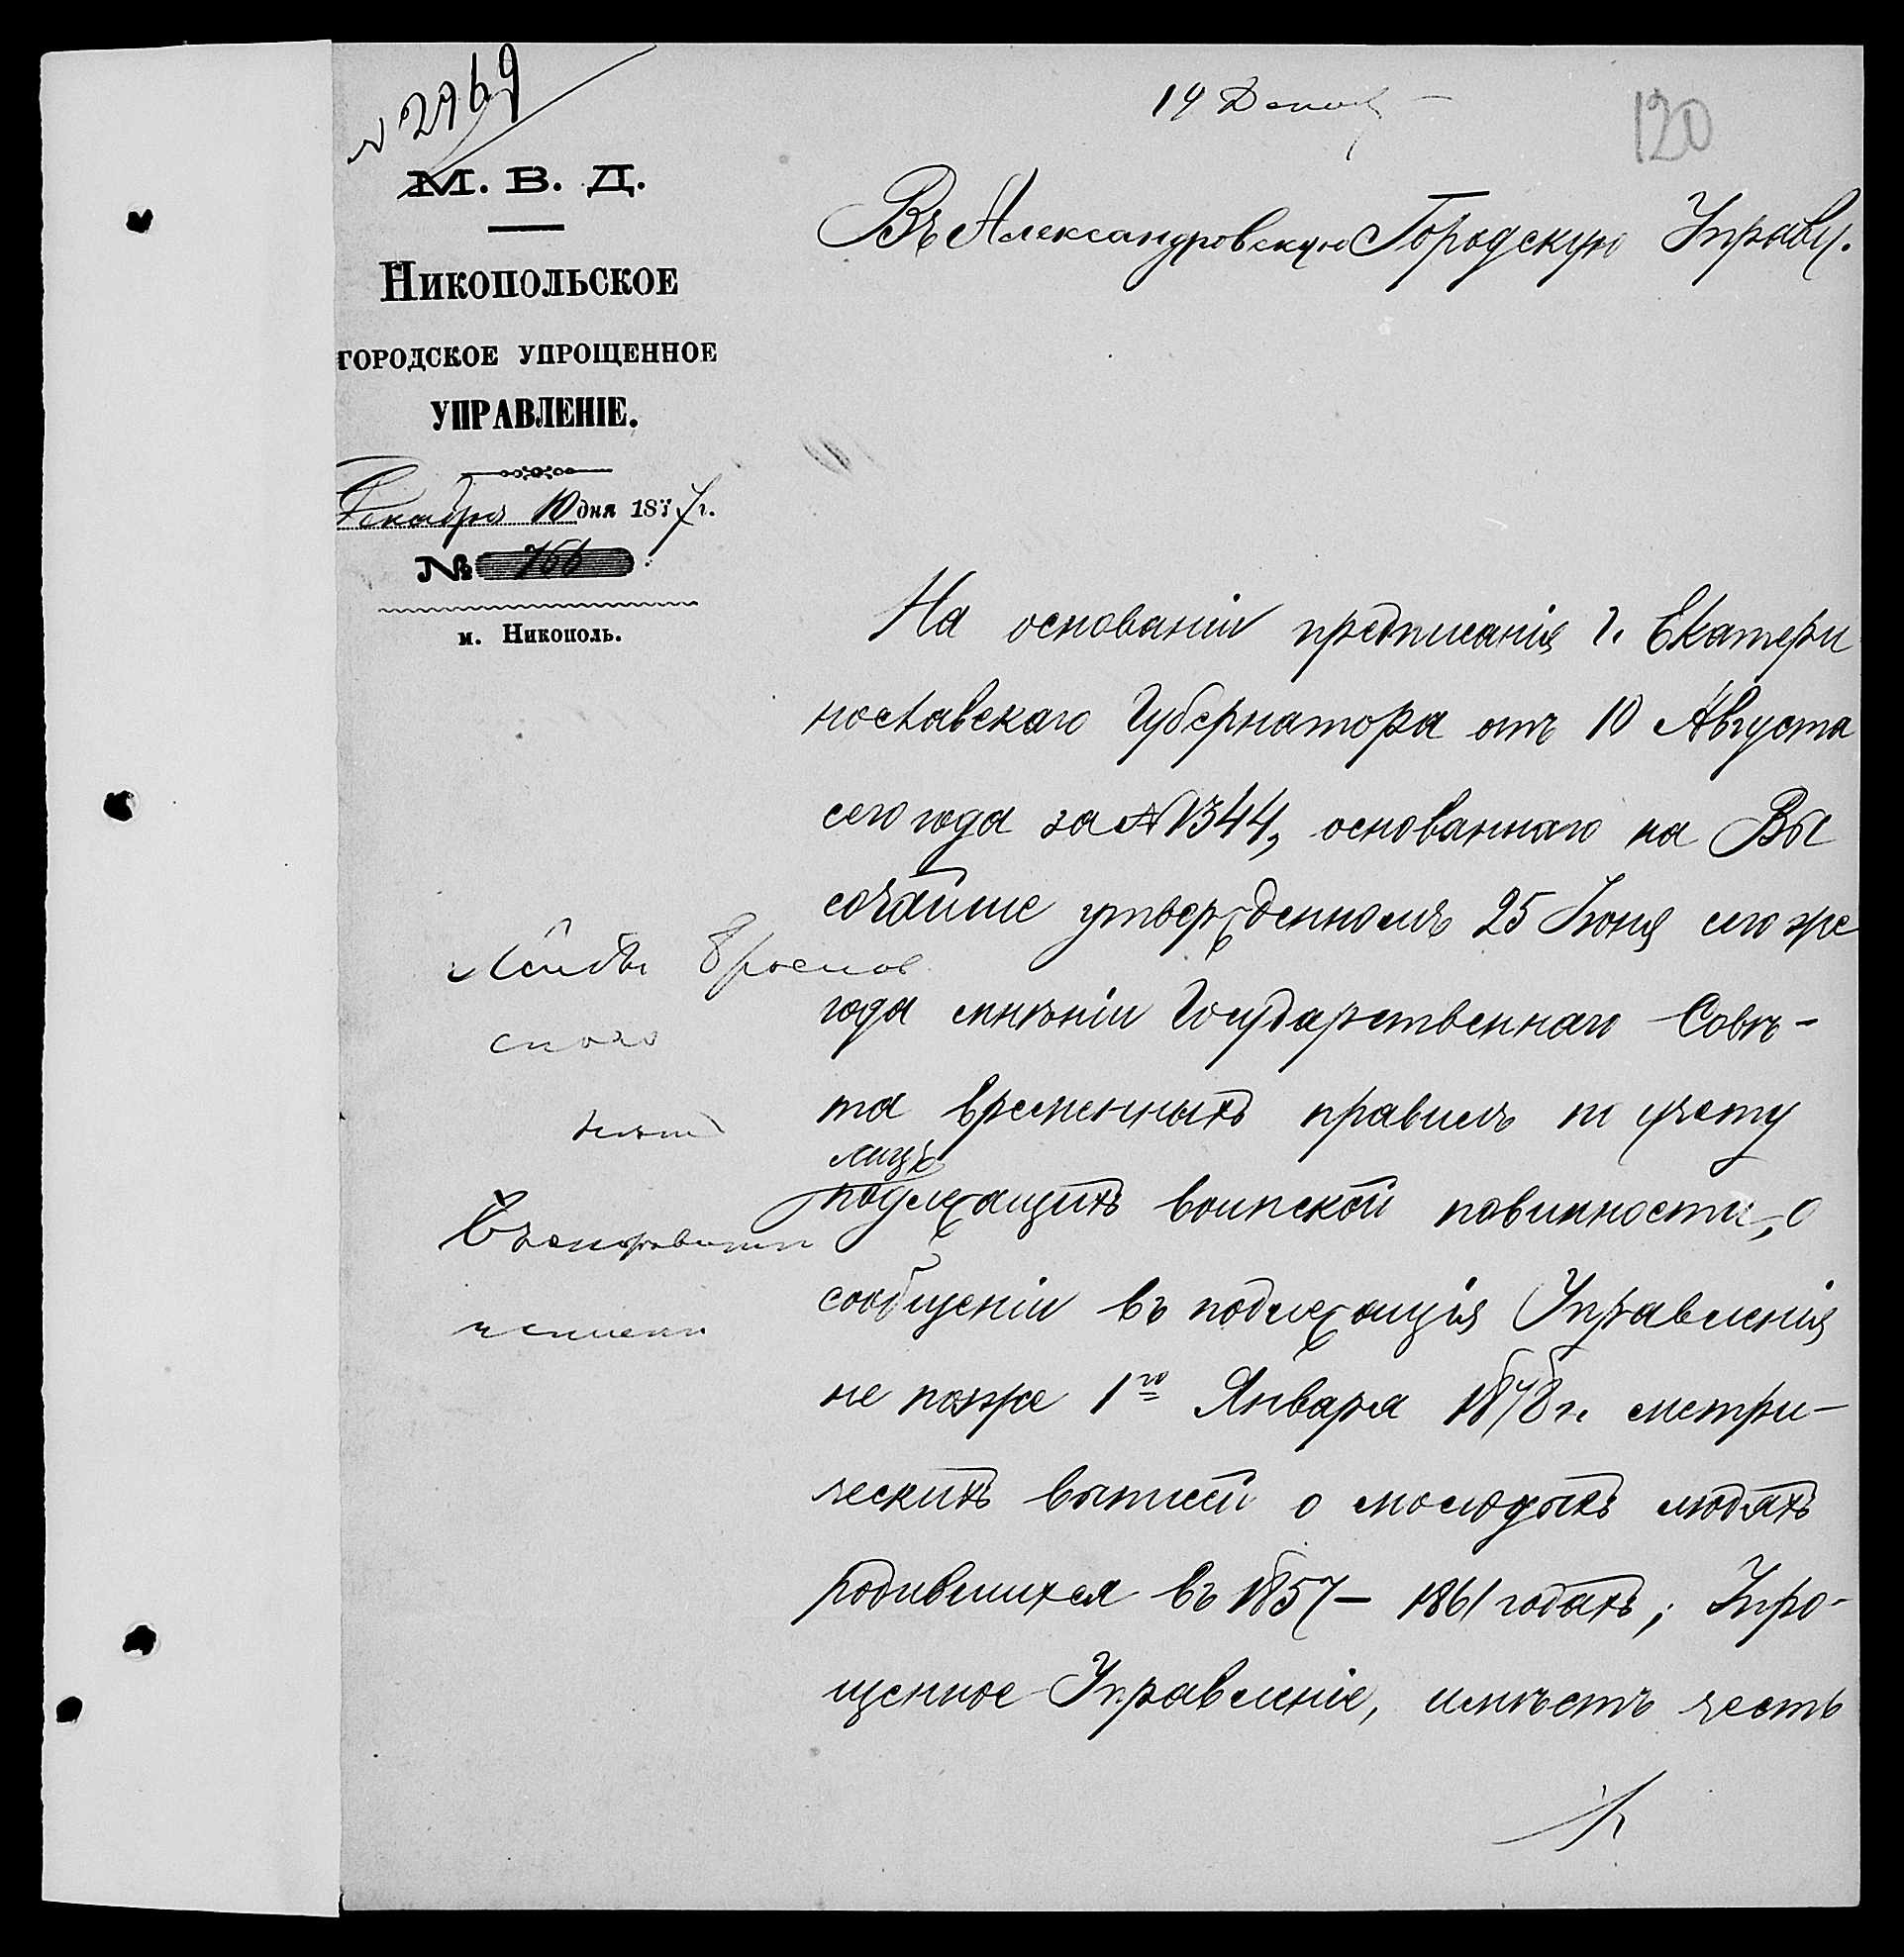 № 2769
19 Декаб
120
М. В. Д.
Никопольское
городское упрощенное
управленіе.
Декабря 10 дня 1877 г.
№ 766
м. Никополь.
Въ Александровскую Городскую Управу.
На основаніи предписанія г. Екатери
нославскаго Губернатора отъ 10 Августа
сего года за №1344, основаннаго на Вы
сочайше утвержденномъ 25 Іюня сего же
года мнѣніи Государственнаго Совѣ-
та временныхъ правилъ по учету
лицъ
подлежащихъ воинской повинности, о
сообщеніи въ подлежащія Управленія
не позже 1го Января 1878 г. метри-
ческихъ выписей о молодыхъ людяхъ
родившихся въ 1857 - 1861 годахъ; Упро-
щенное Управленіе, имѣетъ честь